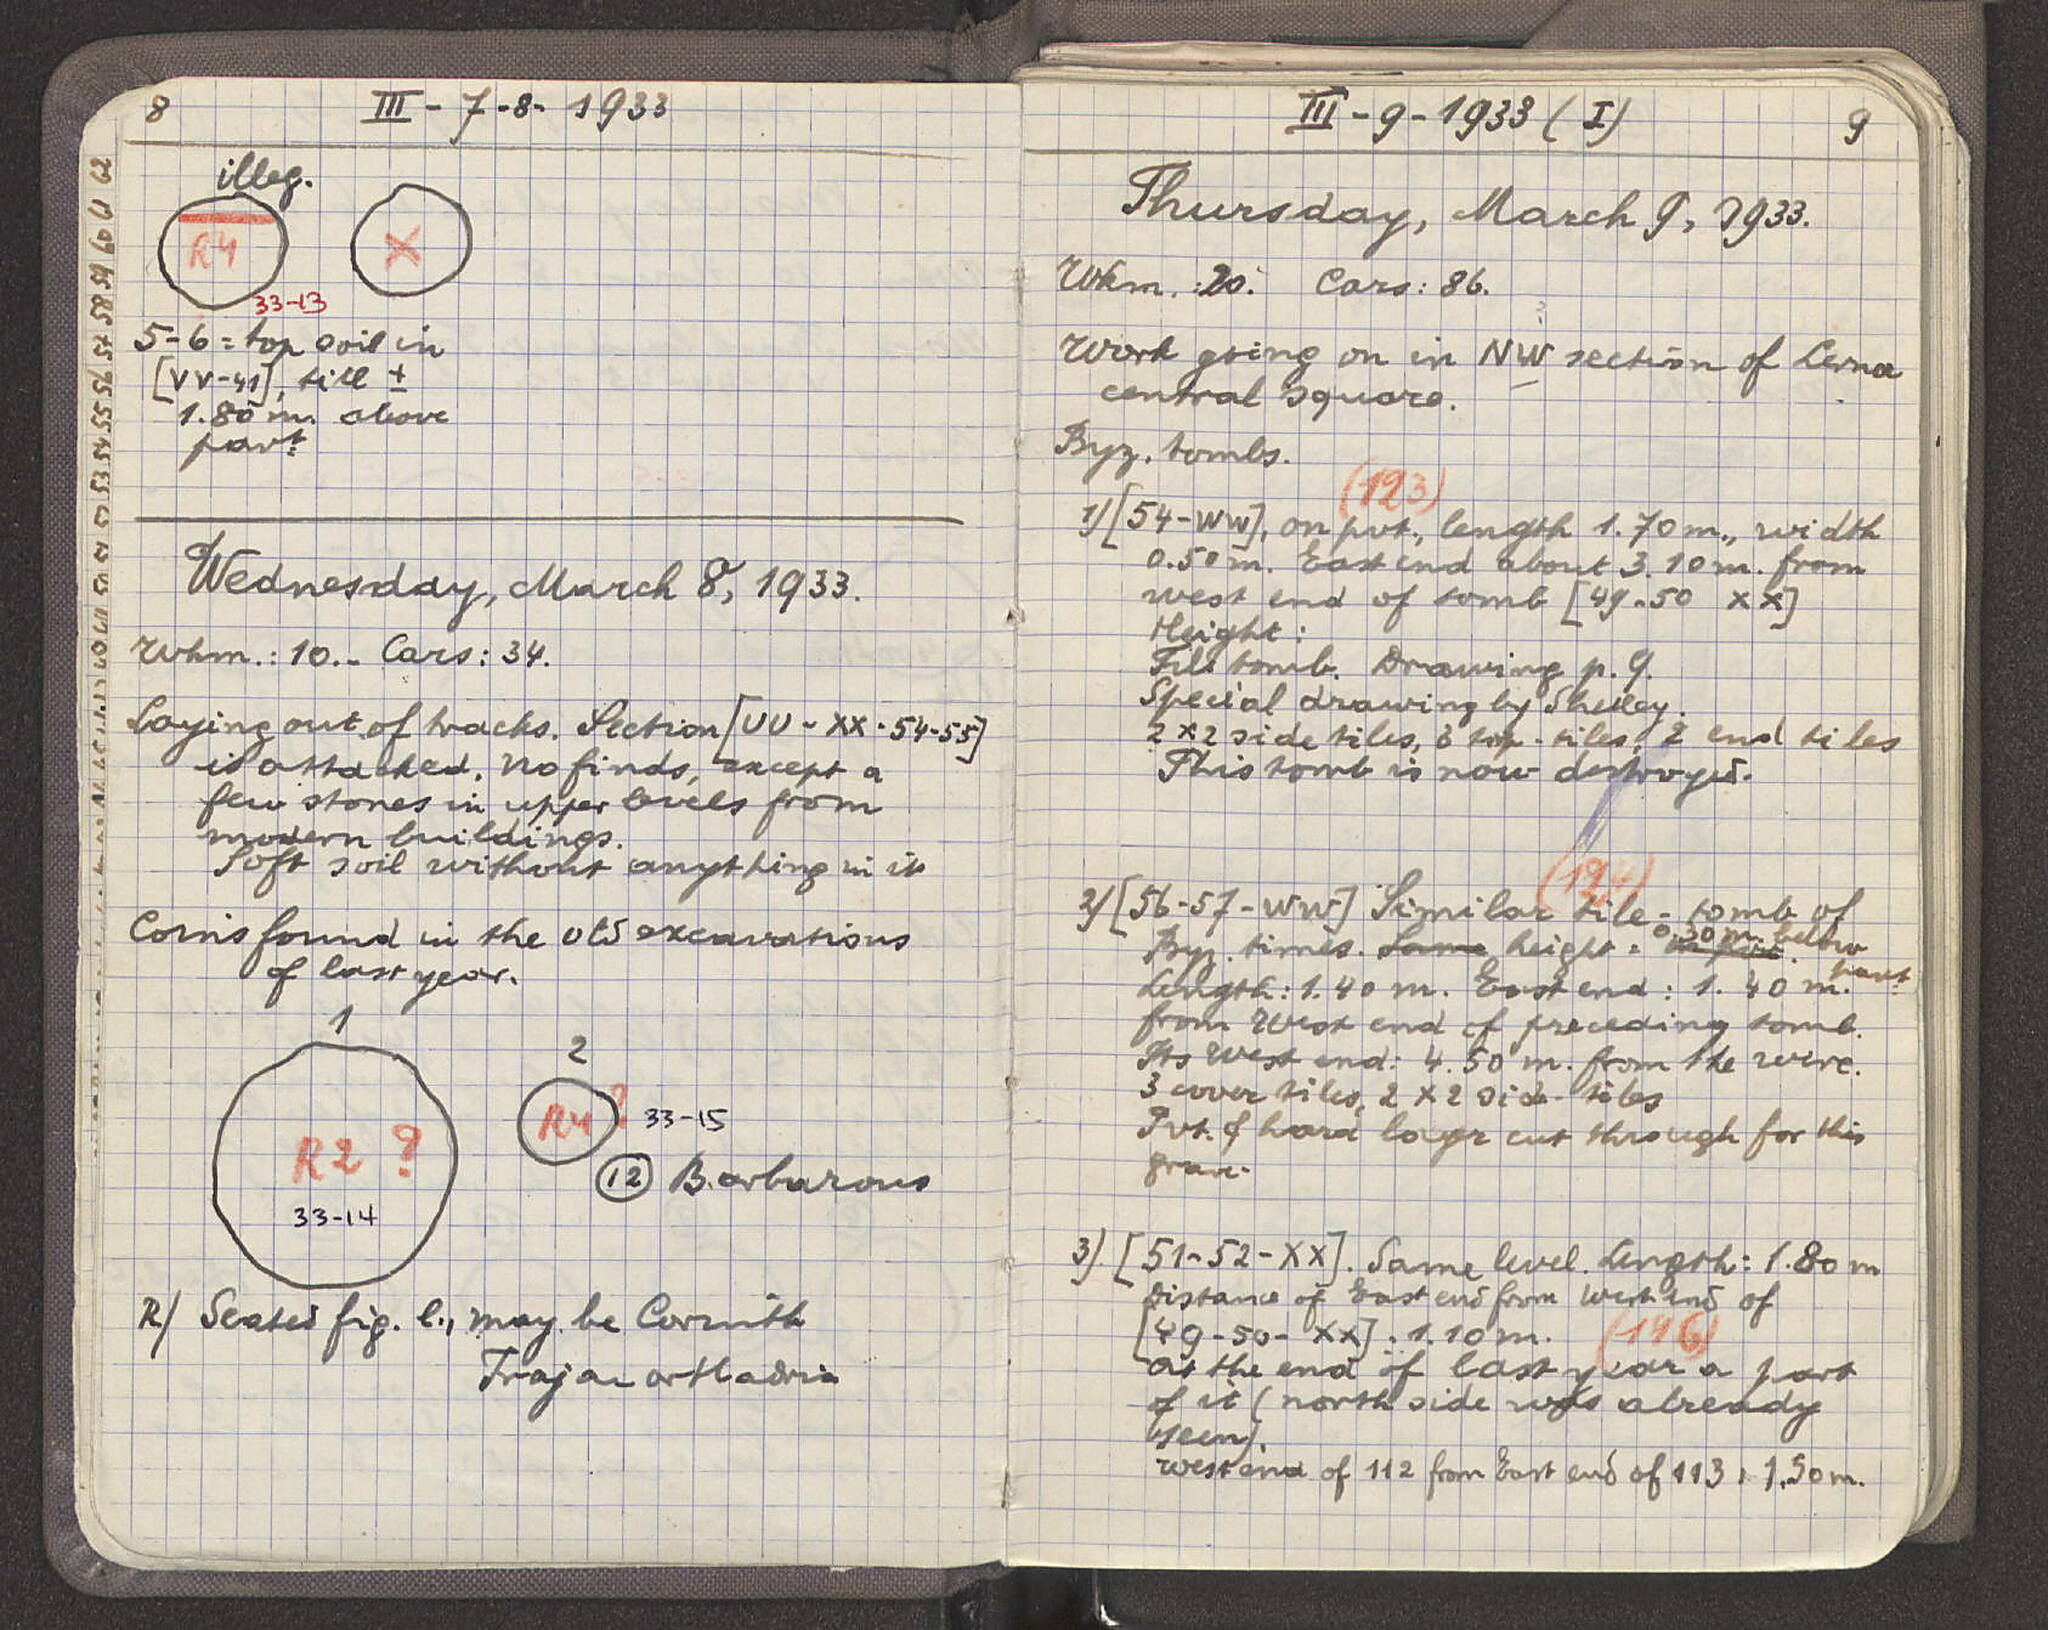 8
III - 7 - 8 - 1933
illeg.
R4
X
33-13
5-6 = top soil in
[VV-41], till ±
1.80 m. above
pavt.
Wednesday, March 8, 1933.
Wkm.: 10.- Cars: 34.
Laying out of tracks. Section [UU - XX - 54-55]
is attacked. No finds, except a
few stones in upper levels from
modern buildings.
Soft soil without anything in it
Coins found in the old excavations
of last year.
1
2
R2 ?
33-14
R4?
33-15
(12) Barbarous
R/ Seated fig. l., may be Corinth
Trajan or Hadria
III - 9 - 1933 (I)
9
Thursday, March 9, 1933.
Wkm.: 20. Cars: 86.
Work going on in NW section of Lerna
central square.
Byz. tombs.
(123)
1) [54-WW], on pvt., length 1.70 m., width
0.50 m. East end about 3.10 m. from
west end of tomb [49-50 XX]
Height:
Tile tomb. Drawing p. 9.
Special drawing by Shelley.
2 x 2 side tiles, 3 top-tiles, 2 end tiles
This tomb is now destroyed.
(124)
2) [56-57-WW] Similar tile-tomb of
Byz. times. Same height = 0.30 m. below pavt.
Length: 1.40 m. East end: 1.40 m.
from West end of preceding tomb.
Its West end: 4.50 m. from the wire.
3 cover tiles, 2 x 2 side tiles
Pvt. & hard layer cut through for this
grave.
3) [51-52-XX]. Same level. Length: 1.80 m
Distance of East end from West end of
[49-50-XX]: 1.10 m.
(116)
At the end of last year a part
of it (north side was already
seen).
West end of 112 from East end of 113: 1.50 m.